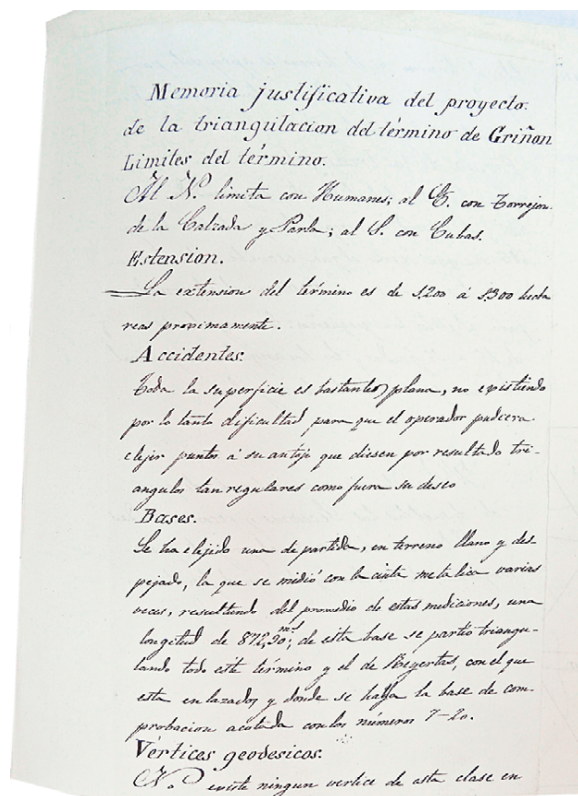 Memoria justificativa del proyecto
de la triangulacion del término de Griñon
Limites del término.
Al N. limita con Humanes; al E. con Torrejon
de la Calzada y Parla; al S. con Cubas.
Estension.
La extension del término es de 1,200 á 1,300 hecta
reas proximamente.
Accidentes.
Toda la superficie es bastante plana, no existiendo
por lo tanto dificultad para que el operador pudiera
elejir puntos á su antojo que diesen por resultado tri-
angulos tan regulares como fuera su deseo
Bases.
Se ha elejido una de partida, en terreno llano y des
pejado, la que se midió con la cinta metalica varias
veces, resultando del promedio de estas mediciones, una
longitud de 872,90 mts; de esta base se partió triangu-
lando todo este término y el de Reyertas, con el que
esta enlazado y donde se halla la base de com-
probacion acotada con los números 7-20.
Vértices geodesicos.
No existe ningun vertice de esta clase en